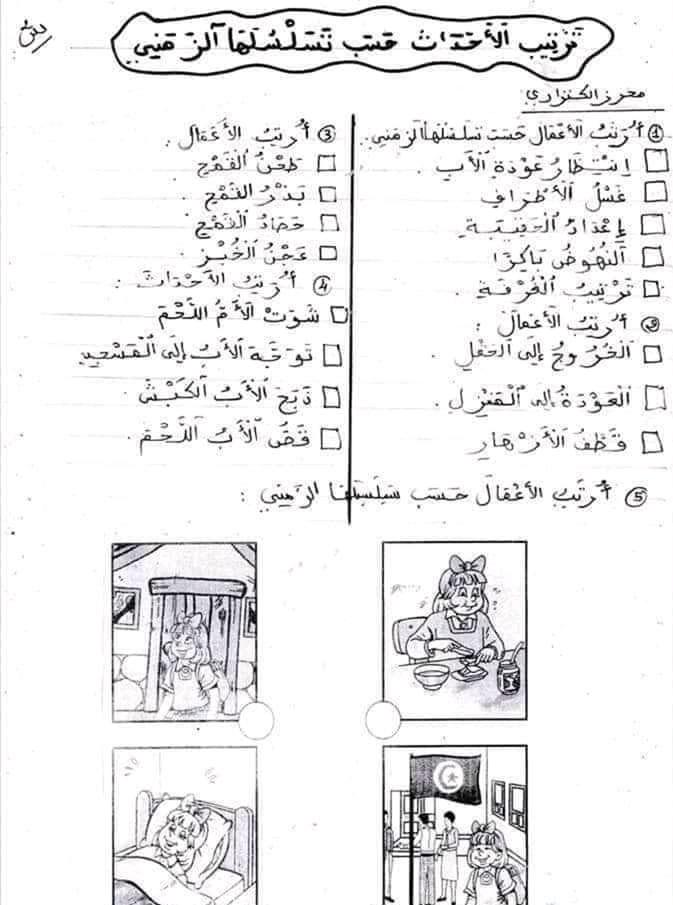 تَرْتِيب الْأَحْدَاث حَسَب تَسَلْسُلِهَا الزَّمَنِي
محرز الكنزاري
① أُرَتِّبُ الأَعْمَالَ حَسَبَ تَسَلْسُلِهَا الزَمَنِي.
اِنْتِظَارُ عَوْدَةِ الْأَبِ.
غَسْلُ الْأَطْرَافِ
إِعْدَادُ الْحَقِيبَةِ
اَلنُّهُوضُ بَاكِرًا
تَرْتِيبُ الْغُرْفَةِ.
② أُرَتِّبُ الأَعْمَالَ :
اَلْخُرُوجُ إِلَى الْحَقْلِ.
اَلْعَوْدَةُ إِلَى الْمَنْزِلِ.
قَطْفُ الْأَزْهَارِ
③ أُرَتِّبُ الأَعْمَالَ.
طَحْنُ الْقَمْحِ
بَذْرُ الْقَمْحِ.
حَصَادُ الْقَمْحِ
عَجْنُ الْخُبْزِ.
④ أُرَتِّبُ الأَحْدَاثَ :
شَوَتْ الْأُمُّ اللَّحْمَ
تَوَجَّهَ الْأَبُ إِلَى الْمَسْجِدِ
ذَبَحَ الْأَبُ الْكَبْشَ.
قَصَّ الْأَبُ اللَّحْمَ.
⑤ أُرَتِّبُ الأَعْمَالَ حَسَبَ سِلْسِلَتِهَا الزَّمَنِي :